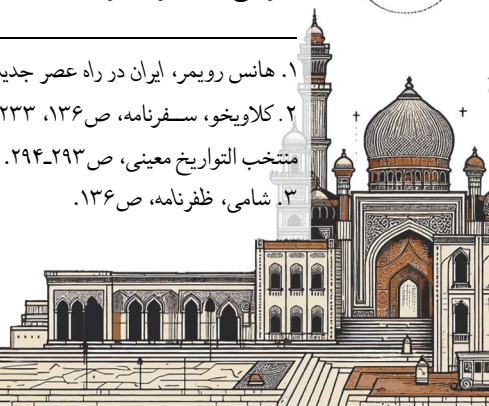 ۱. هانس رویمر، ایران در راه عصر جدید
۲. کلاویخو، سفرنامه، ص۱۳۶، ۲۳۳
منتخب التواریخ معینی، ص۲۹۳ـ۲۹۴.
۳. شامی، ظفرنامه، ص۱۳۶.